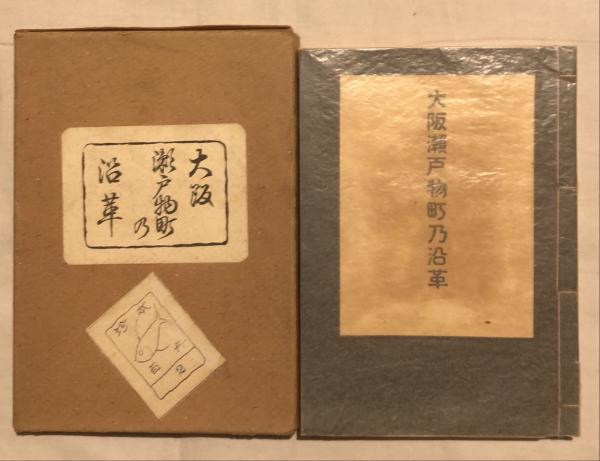 大阪
瀬戸物町
乃
沿革
大阪瀬戸物町乃沿革